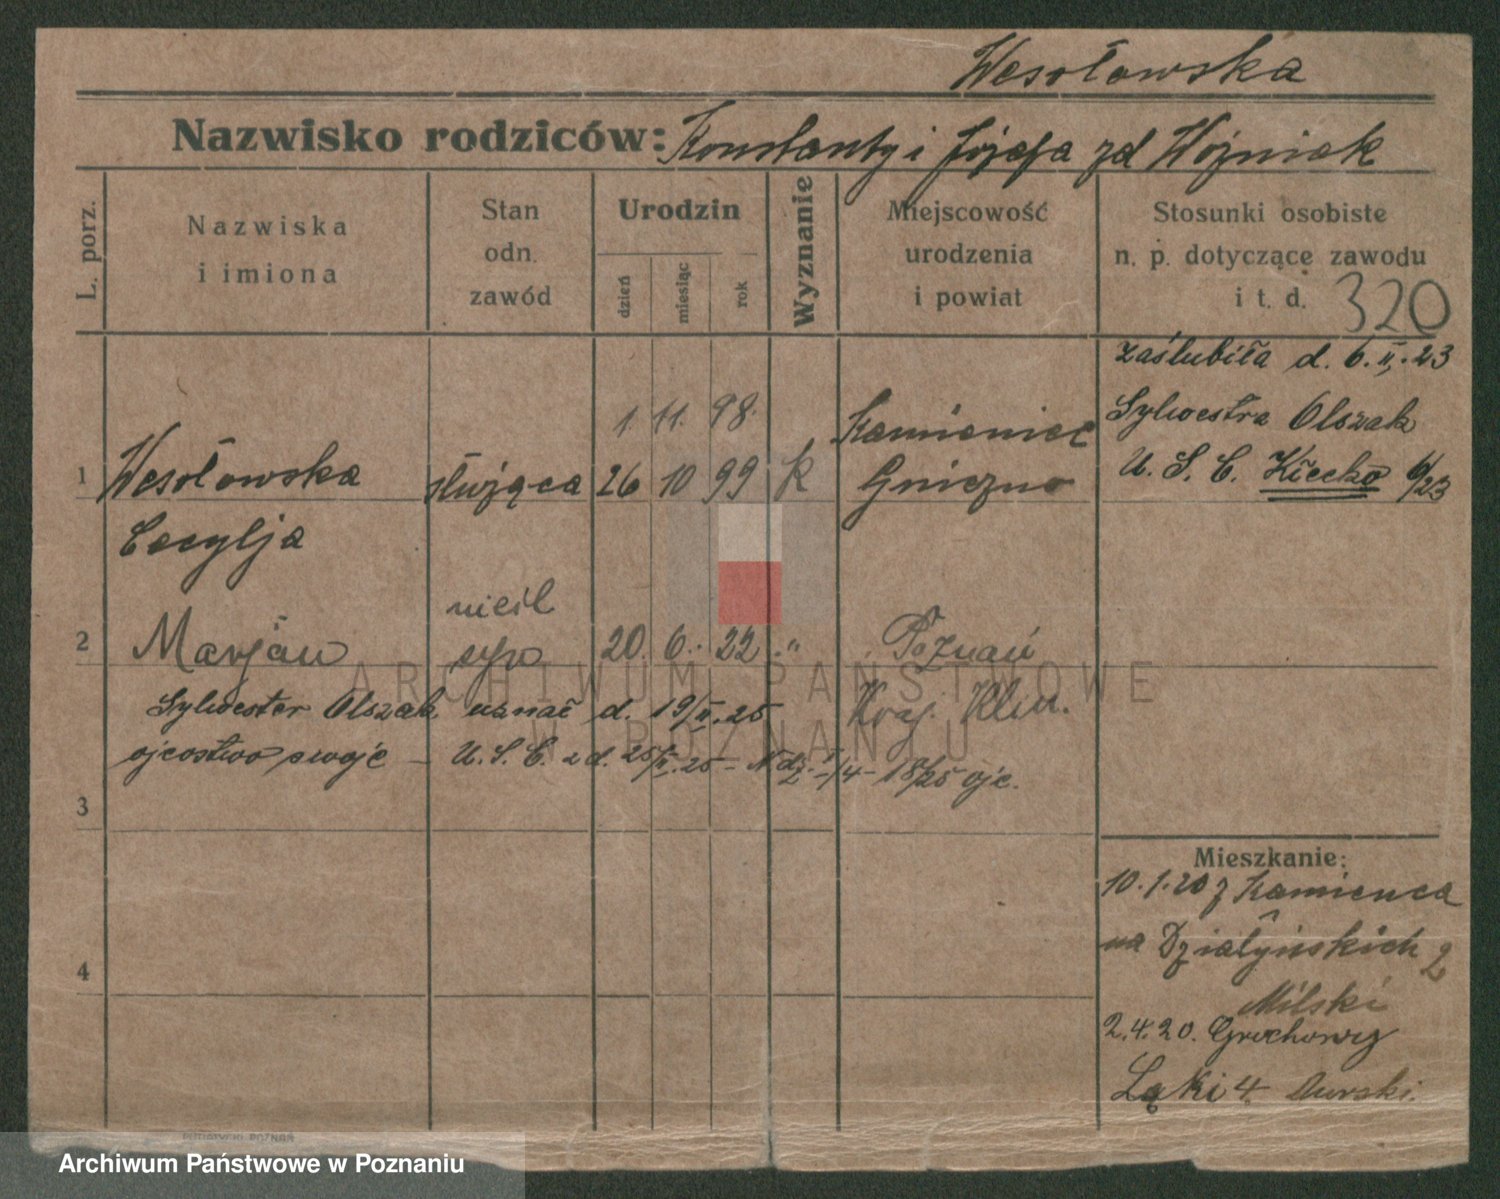 Wesołowska
Nazwisko rodziców: Konstanty i Józefa zd Woźniak
L. porz.
Nazwiska
i imiona
Stan
odn.
zawód
Urodzin
dzień
miesiąc
rok
Wyznanie
Miejscowość
urodzenia
i powiat
Stosunki osobiste
n. p. dotyczące zawodu
i t. d. 320
1
Wesołowska
Cecylja
służąca
1 11. 98.
26 10 99
k
Kamieniec
Gniezno
zaślubiła d. 6.II.23
Sylwestra Olszak
U. S. C. Kłecko 6/23
2
Marjan
nieśl
syn
20. 6. 22 "
Poznań
Kraj. Klin.
Sylwester Olszak uznał d. 19/II.25
ojcostwo swoje – U.S.C. z d. 25/II.25 – 18/25 ojc.
3
4
Mieszkanie:
10.1.20 z Kamieńca
na Działyńskich 2
Milski
2.4.20. Grochowy
Łąki 4
POZNAŃ
ARCHIWUM PAŃSTWOWE
W POZNANIU
Archiwum Państwowe w Poznaniu